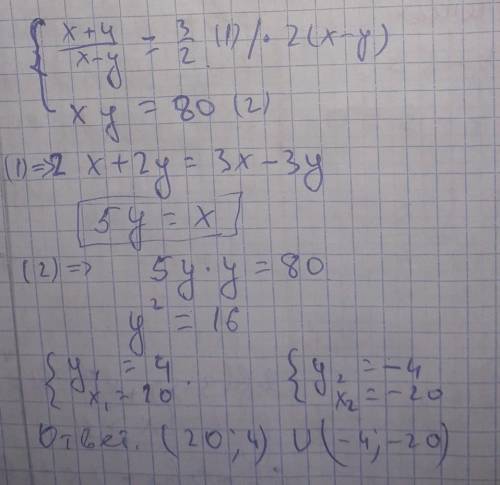 { x+y/x-y = 3/2 (1) / · 2(x-y)
xy = 80 (2)
(1) => 2x+2y = 3x-3y
5y = x
(2) => 5y·y = 80
y² = 16
{ y₁ = 4 { y₂ = -4
x₁ = 20 x₂ = -20
Ответ. (20;4) U (-4;-20)